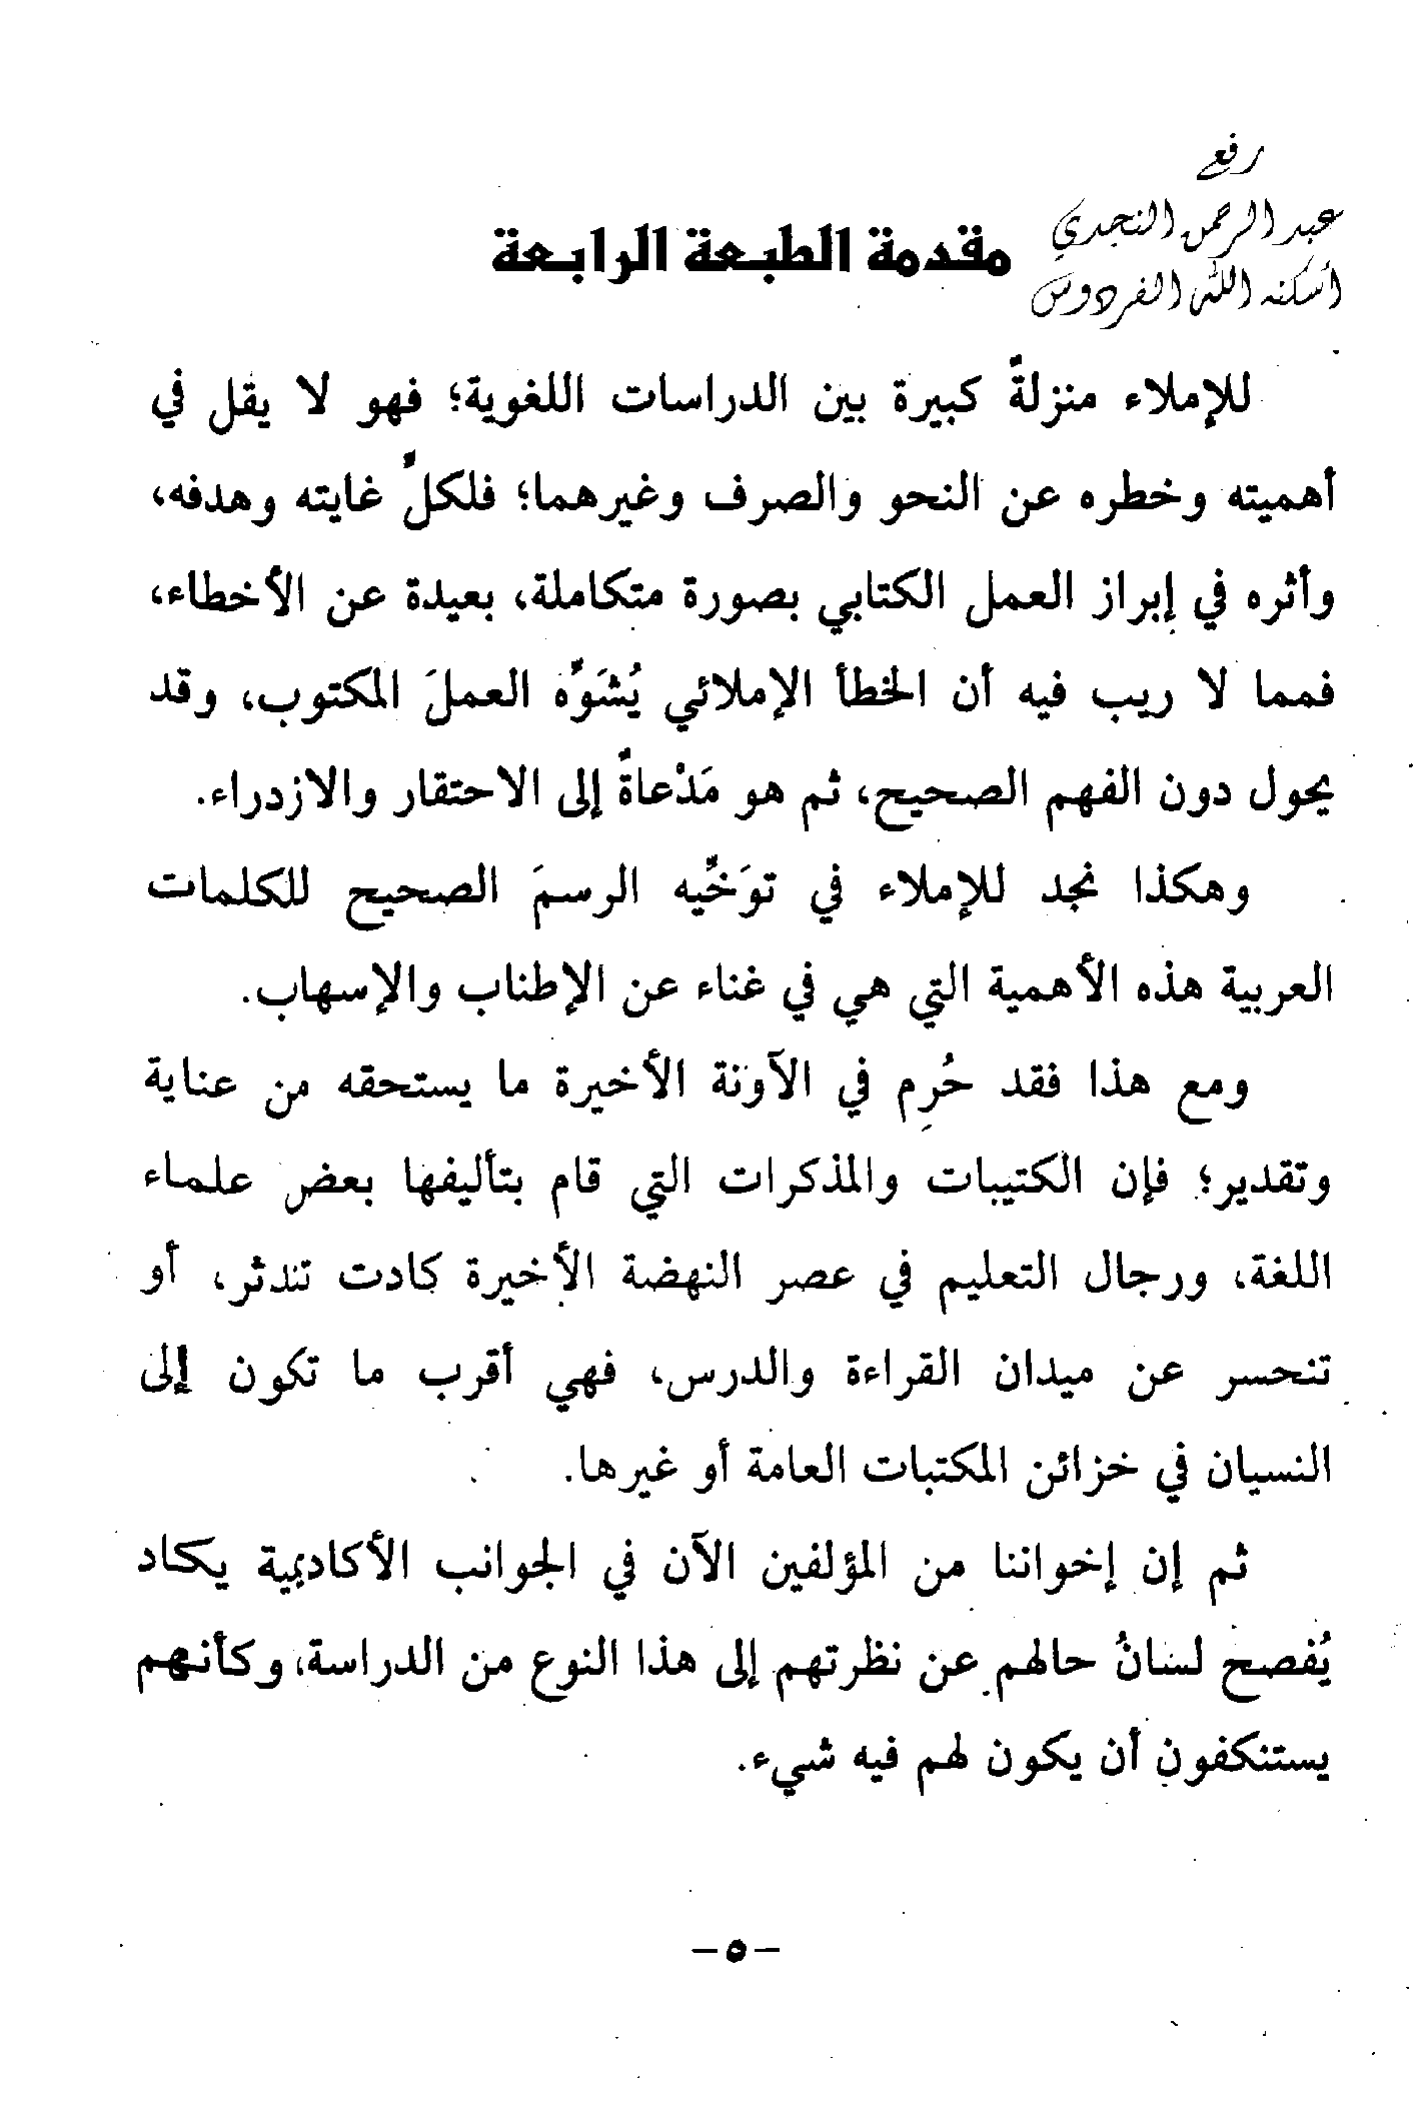 رفع
عبد الرحمن النجدي
أسكنه الله الفردوس
مقدمة الطبعة الرابعة
للإملاء منزلةٌ كبيرة بين الدراسات اللغوية؛ فهو لا يقل في
أهميته وخطره عن النحو والصرف وغيرهما؛ فلكلٍّ غايته وهدفه،
وأثره في إبراز العمل الكتابي بصورة متكاملة، بعيدة عن الأخطاء،
فمما لا ريب فيه أن الخطأ الإملائي يُشَوِّه العملَ المكتوب، وقد
يحول دون الفهم الصحيح، ثم هو مَدْعاةٌ إلى الاحتقار والازدراء.
وهكذا نجد للإملاء في توَخِّيه الرسمَ الصحيح للكلمات
العربية هذه الأهمية التي هي في غناء عن الإطناب والإسهاب.
ومع هذا فقد حُرِم في الآونة الأخيرة ما يستحقه من عناية
وتقدير؛ فإن الكتيبات والمذكرات التي قام بتأليفها بعض علماء
اللغة، ورجال التعليم في عصر النهضة الأخيرة كادت تندثر، أو
تنحسر عن ميدان القراءة والدرس، فهي أقرب ما تكون إلى
النسيان في خزائن المكتبات العامة أو غيرها.
ثم إن إخواننا من المؤلفين الآن في الجوانب الأكاديمية يكاد
يُفصح لسانُ حالهم عن نظرتهم إلى هذا النوع من الدراسة، وكأنهم
يستنكفون أن يكون لهم فيه شيء.
– ٥ –